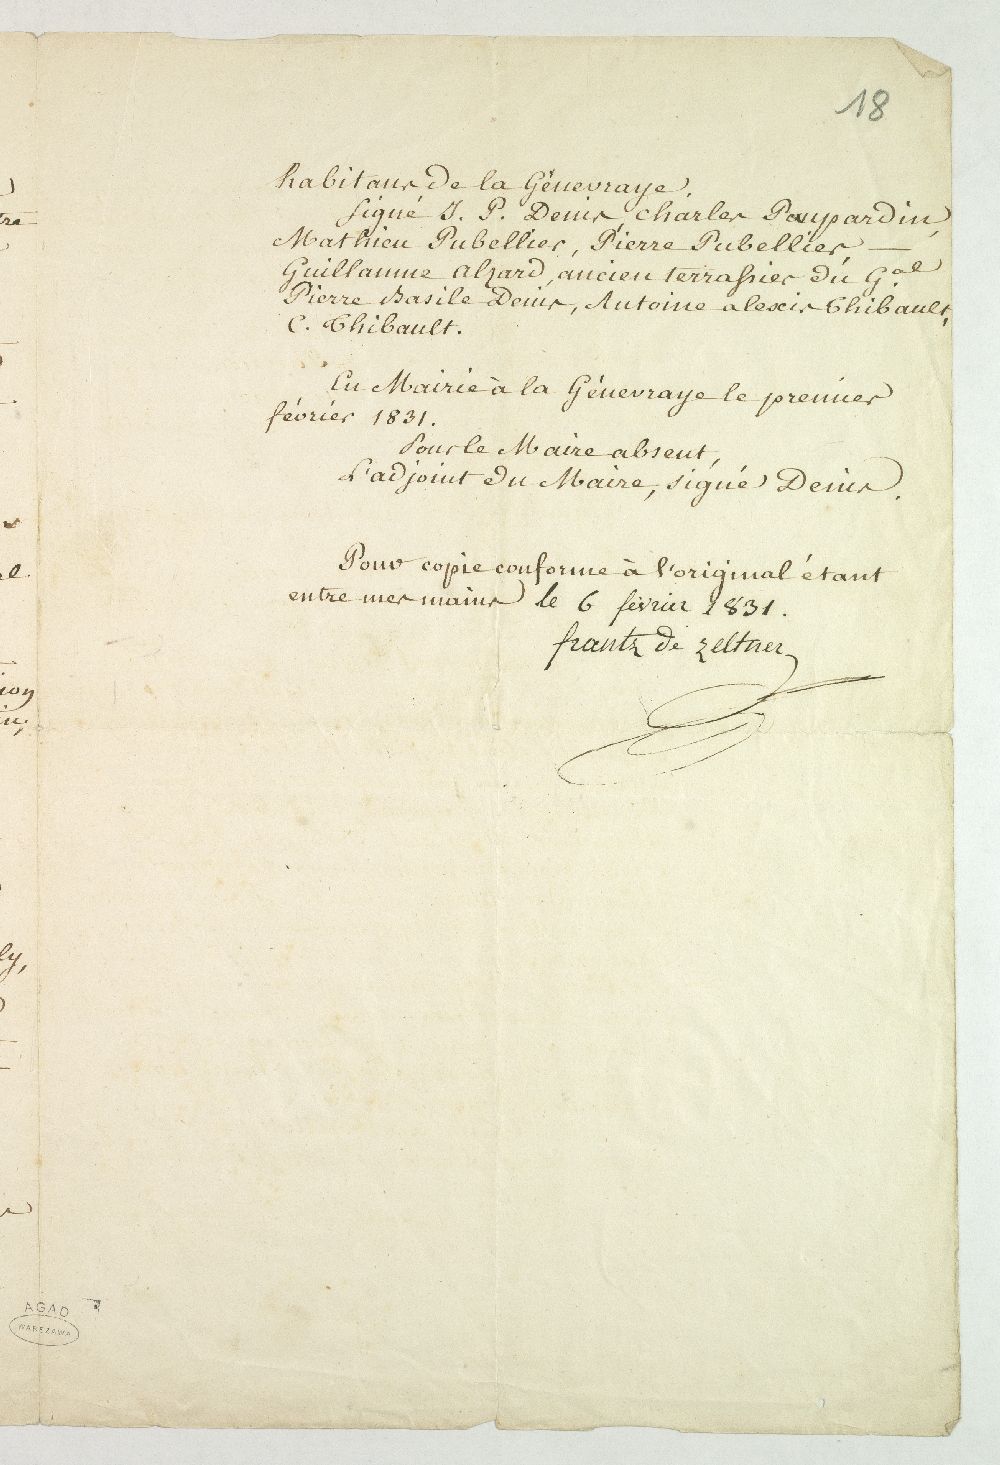 18
habitans de la Génevraye.
Signé J. P. Denis, Charles Poupardin,
Mathieu Pubellier, Pierre Pubellier —
Guillaume alzard, ancien terrassier du Gal
Pierre Basile Denis, Antoine alexis Thibault,
C. Thibault.
En Mairie à la Génevraye le premier
février 1831.
Pour le Maire absent,
L'adjoint du Maire, signé Denis.
Pour copie conforme à l'original étant
entre mes mains le 6 février 1831.
frantz de zeltner
AGAD
WARSZAWA